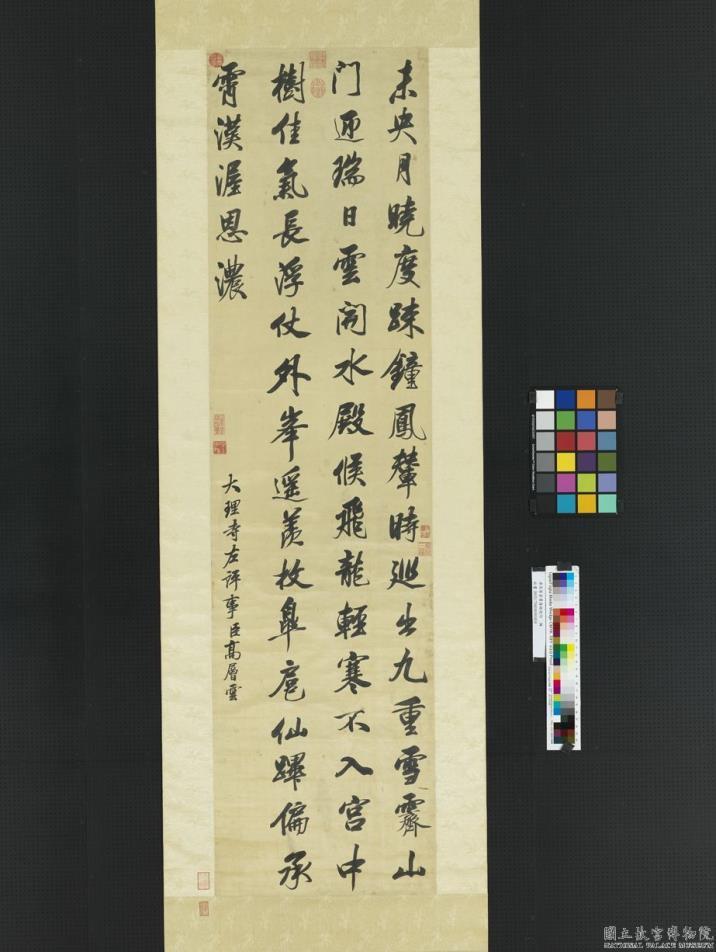 未央月曉度疎鐘鳳輦時巡出九重雪霽山
門迎瑞日雲開水殿候飛龍輕寒不入宮中
樹佳氣長浮仗外峯遥羨枚臯扈仙蹕偏承
霄漢渥恩濃
大理寺左評事臣高層雲
國立故宮博物院
NATIONAL PALACE MUSEUM